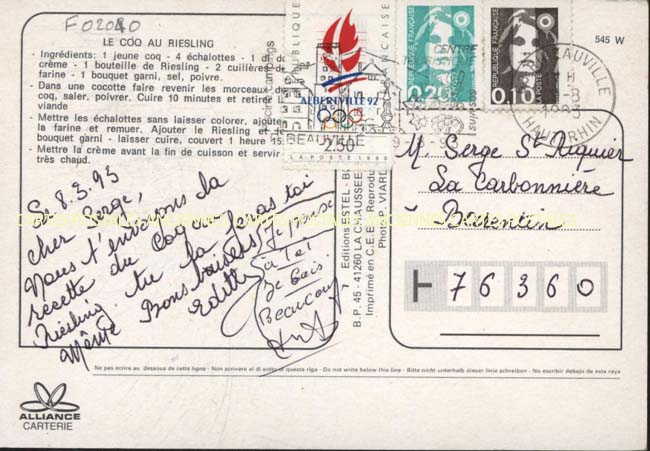 F02040
LE COQ AU RIESLING
- Ingrédients: 1 jeune coq - 4 échalottes - 1 dl de
crème - 1 bouteille de Riesling - 2 cuillères de
farine - 1 bouquet garni, sel, poivre.
- Dans une cocotte faire revenir les morceaux de
coq, saler, poivrer. Cuire 10 minutes et retirer
viande
- Mettre les échalottes sans laisser colorer, ajouter
la farine et remuer. Ajouter le Riesling et
bouquet garni - laisser cuire, couvert 1 heure 15.
- Mettre la crème avant la fin de cuisson et servir
très chaud.
S. 8.3.93
cher Serge,
Nous t'envoyons la
recette du Coq au
Riesling. tu la feras toi
même
Bons baisers
Edith
Je pense
à toi
Je fais
Beaucoup
ALBERTVILLE 92
2.50
LA POSTE 1990
RÉPUBLIQUE FRANÇAISE
0,20
RÉPUBLIQUE FRANÇAISE
LA POSTE
0,10
CENTRE
TOURISTIQUE
BEAUVILLE
HAUT-RHIN
545 W
Editions ESTEL - B
B.P. 45 - 41260 LA CHAUSSEE
Imprimé en C.E.E. - Reprodu
Photo P. VIARD
M. Serge St Riquier
La Carbonnière
Barentin
76360
Ne pas écrire au dessous de cette ligne - Non scrivere al di sotto di questa riga - Do not write below this line - Bitte nicht unterhalb dieser linie schreiben - No escribir debajo de esta raya
ALLIANCE
CARTERIE